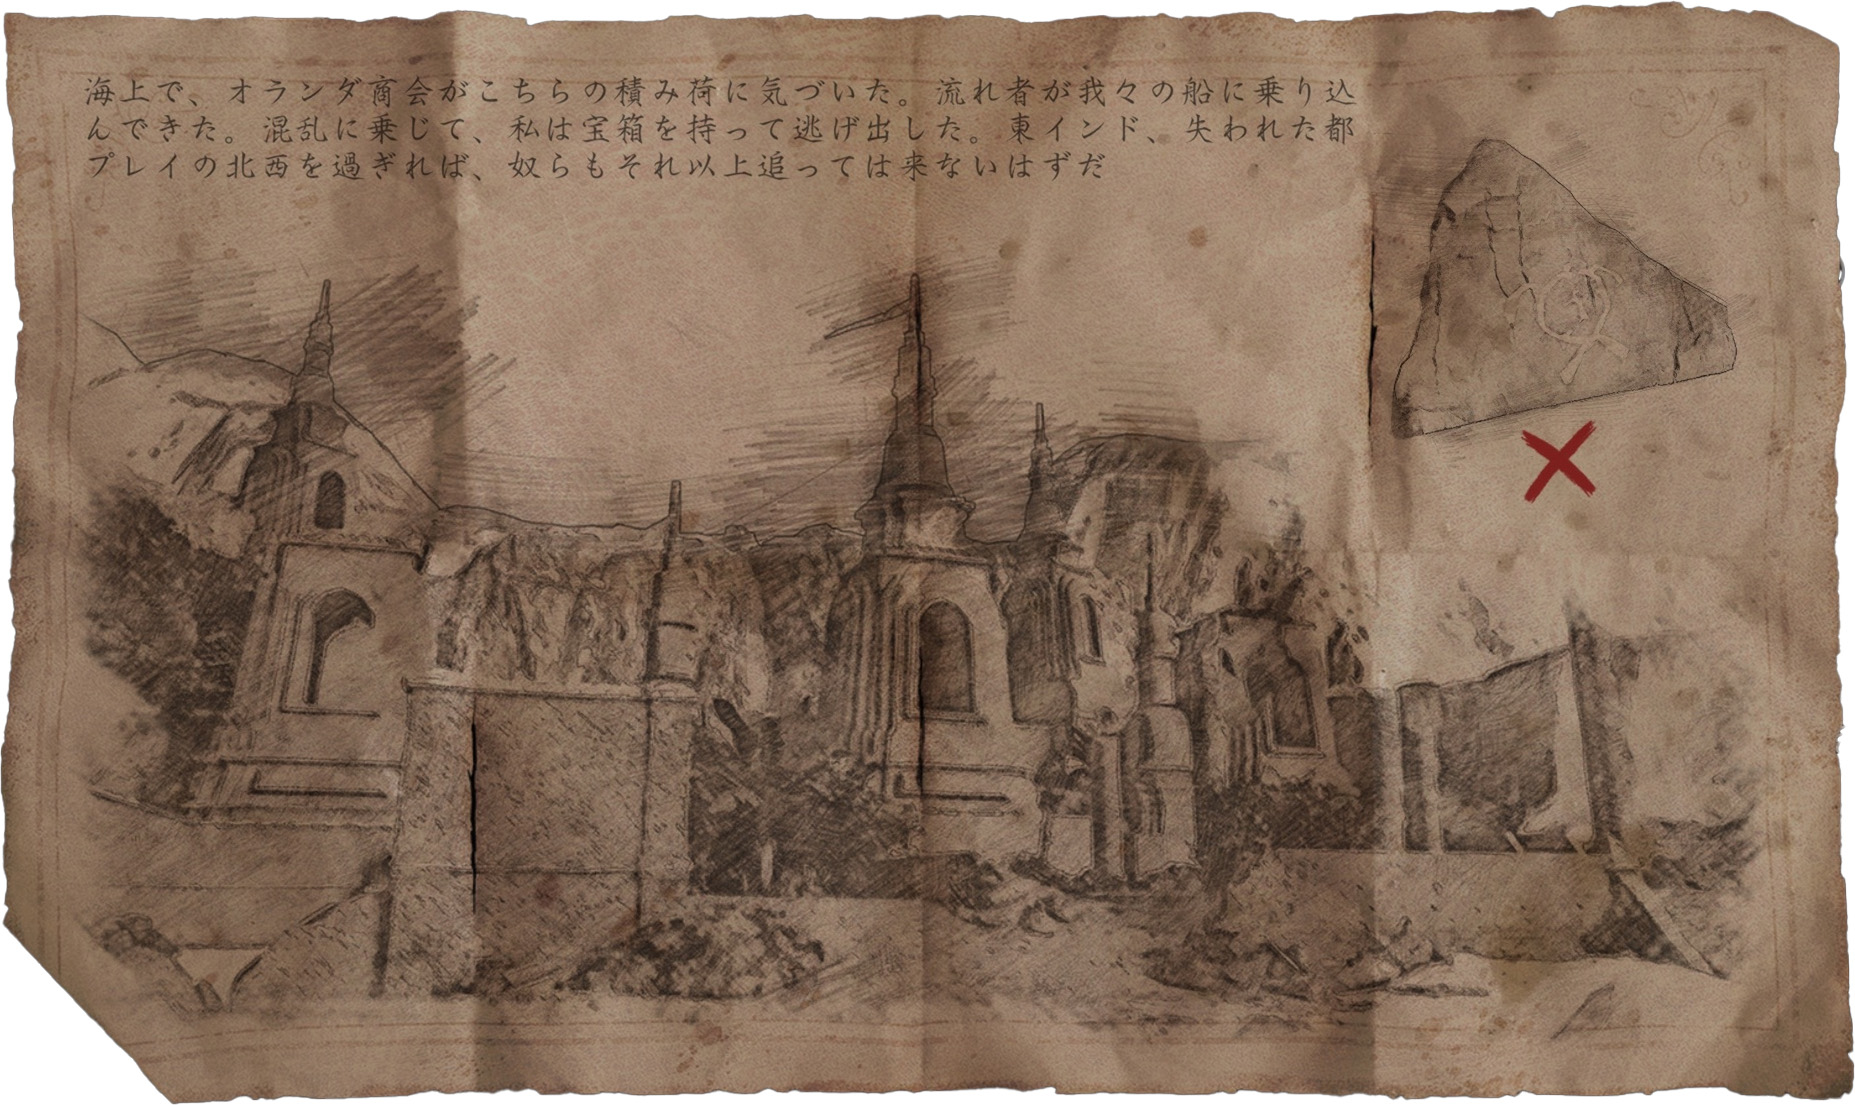 海上で、オランダ商会がこちらの積み荷に気づいた。流れ者が我々の船に乗り込
んできた。混乱に乗じて、私は宝箱を持って逃げ出した。東インド、失われた都
プレイの北西を過ぎれば、奴らもそれ以上追っては来ないはずだ